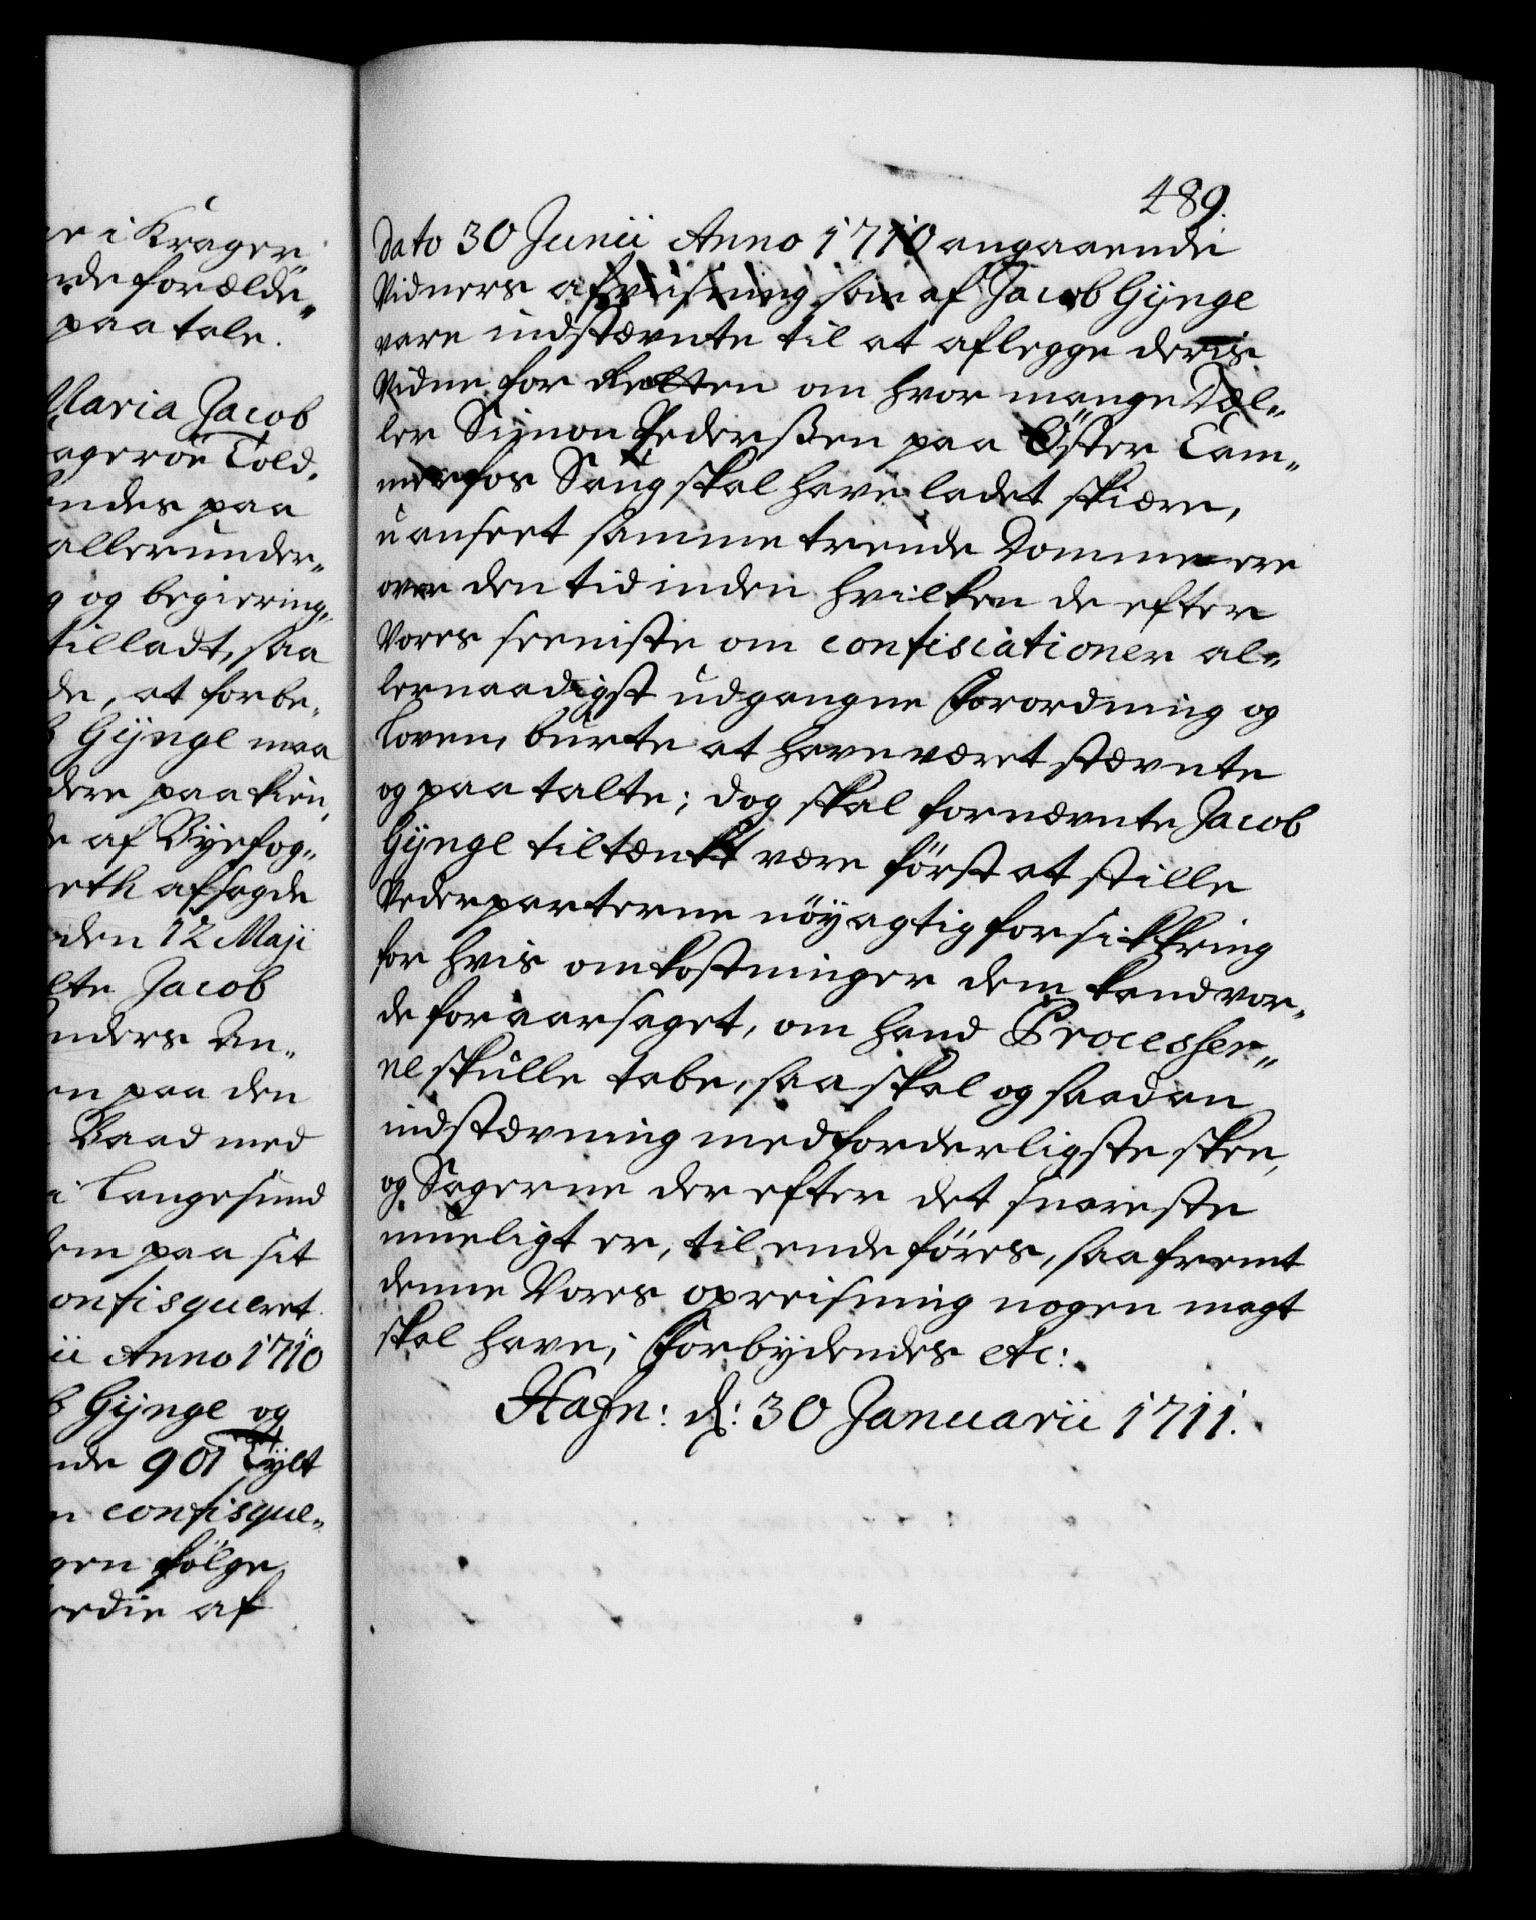 er i Kragerø
nde forælde„
paatale.
Maria Jacob
ageröe Told„
endes paa
allerunder„
g og begiering„
tilladt, saa
de, at forbe„
b Gÿnge maa
dere paakien„
e af Bÿefog„
eth afsagde
den 12 Maji
lte Jacob
Anders An„
en paa den
Baad med
i Langesund
dem paa sit
onfisqueret.
ii Anno 1710
b Gÿnge og
nde 901 Tÿlt
n confisque„
gen fölge
erdie af
489.
Dato 30 Junii Anno 1710 angaaende
Vidners afviisning som af Jacob Gÿnge
vare indstævnte til at aflegge deris
Vidne for Retten om hvor mange Dæl„
ler Simon Pederßen paa Öster Cam„
merfos Saug skal have ladet skiære,
uanseet samme trende Domme ere
over den tid inden hvilken de efter
Vores seeniste om confiscationer al„
lernaadigst udgangne Forordning og
Loven, burte at have været stævnte
og paatalte; dog skal fornævnte Jacob
Gÿnge tiltænkt være först at stille
Vederparterne nöÿagtig forsikkring
for hvis omkostninger dem kand vor„
de foraarsaget, om hand Processer„
ne skulle tabe, saa skal og saadan
indstævning med forderligste skee,
og Sagerne der efter det snareste
mueligt er, til ende föres, saafremt
denne Vores opreisning nogen magt
skal have; Forbÿdendes etc:
Hafn: d: 30 Januarii 1711.